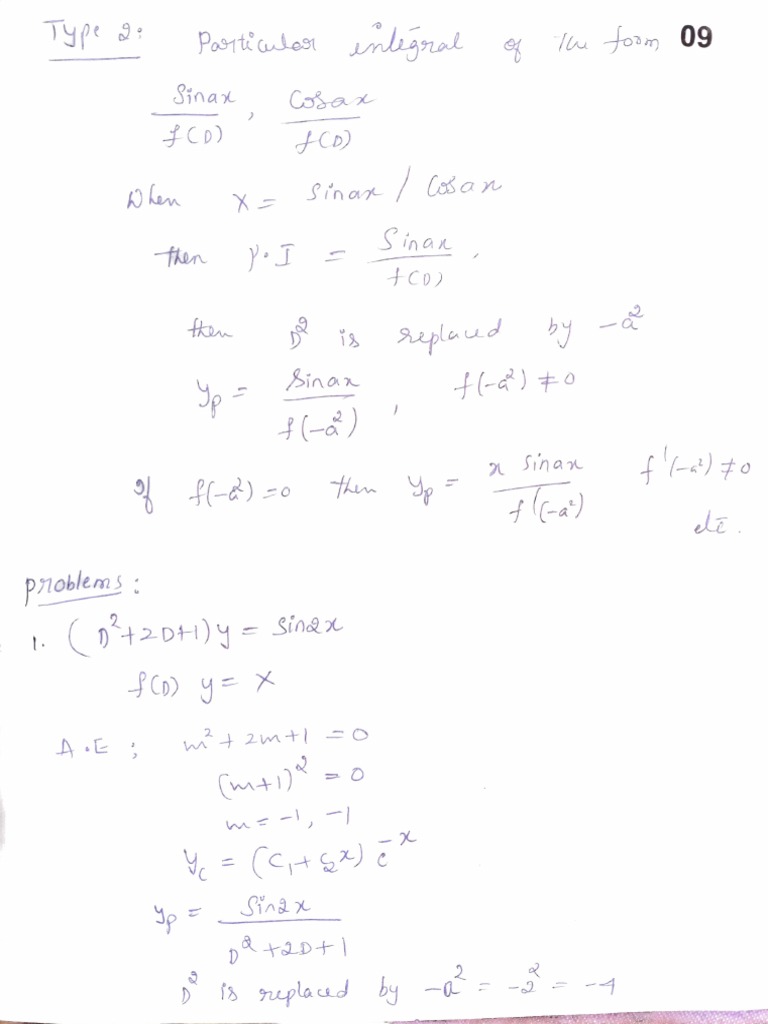 Type 2: Particular integral of the form 09
Sinax/f(D), Cosax/f(D)
When X = Sinax / Cosax
then P.I = Sinax/f(D),
then D² is replaced by -a²
yp = Sinax/f(-a²), f(-a²) ≠ 0
If f(-a²) = 0 then yp = x sinax/f'(-a²) f'(-a²) ≠ 0
etc.
Problems:
1. (D²+2D+1)y = Sin2x
f(D) y = X
A.E ; m² + 2m+1 = 0
(m+1)² = 0
m = -1, -1
yc = (C₁+C₂x) e^-x
yp = Sin2x/D²+2D+1
D² is replaced by -a² = -2² = -4